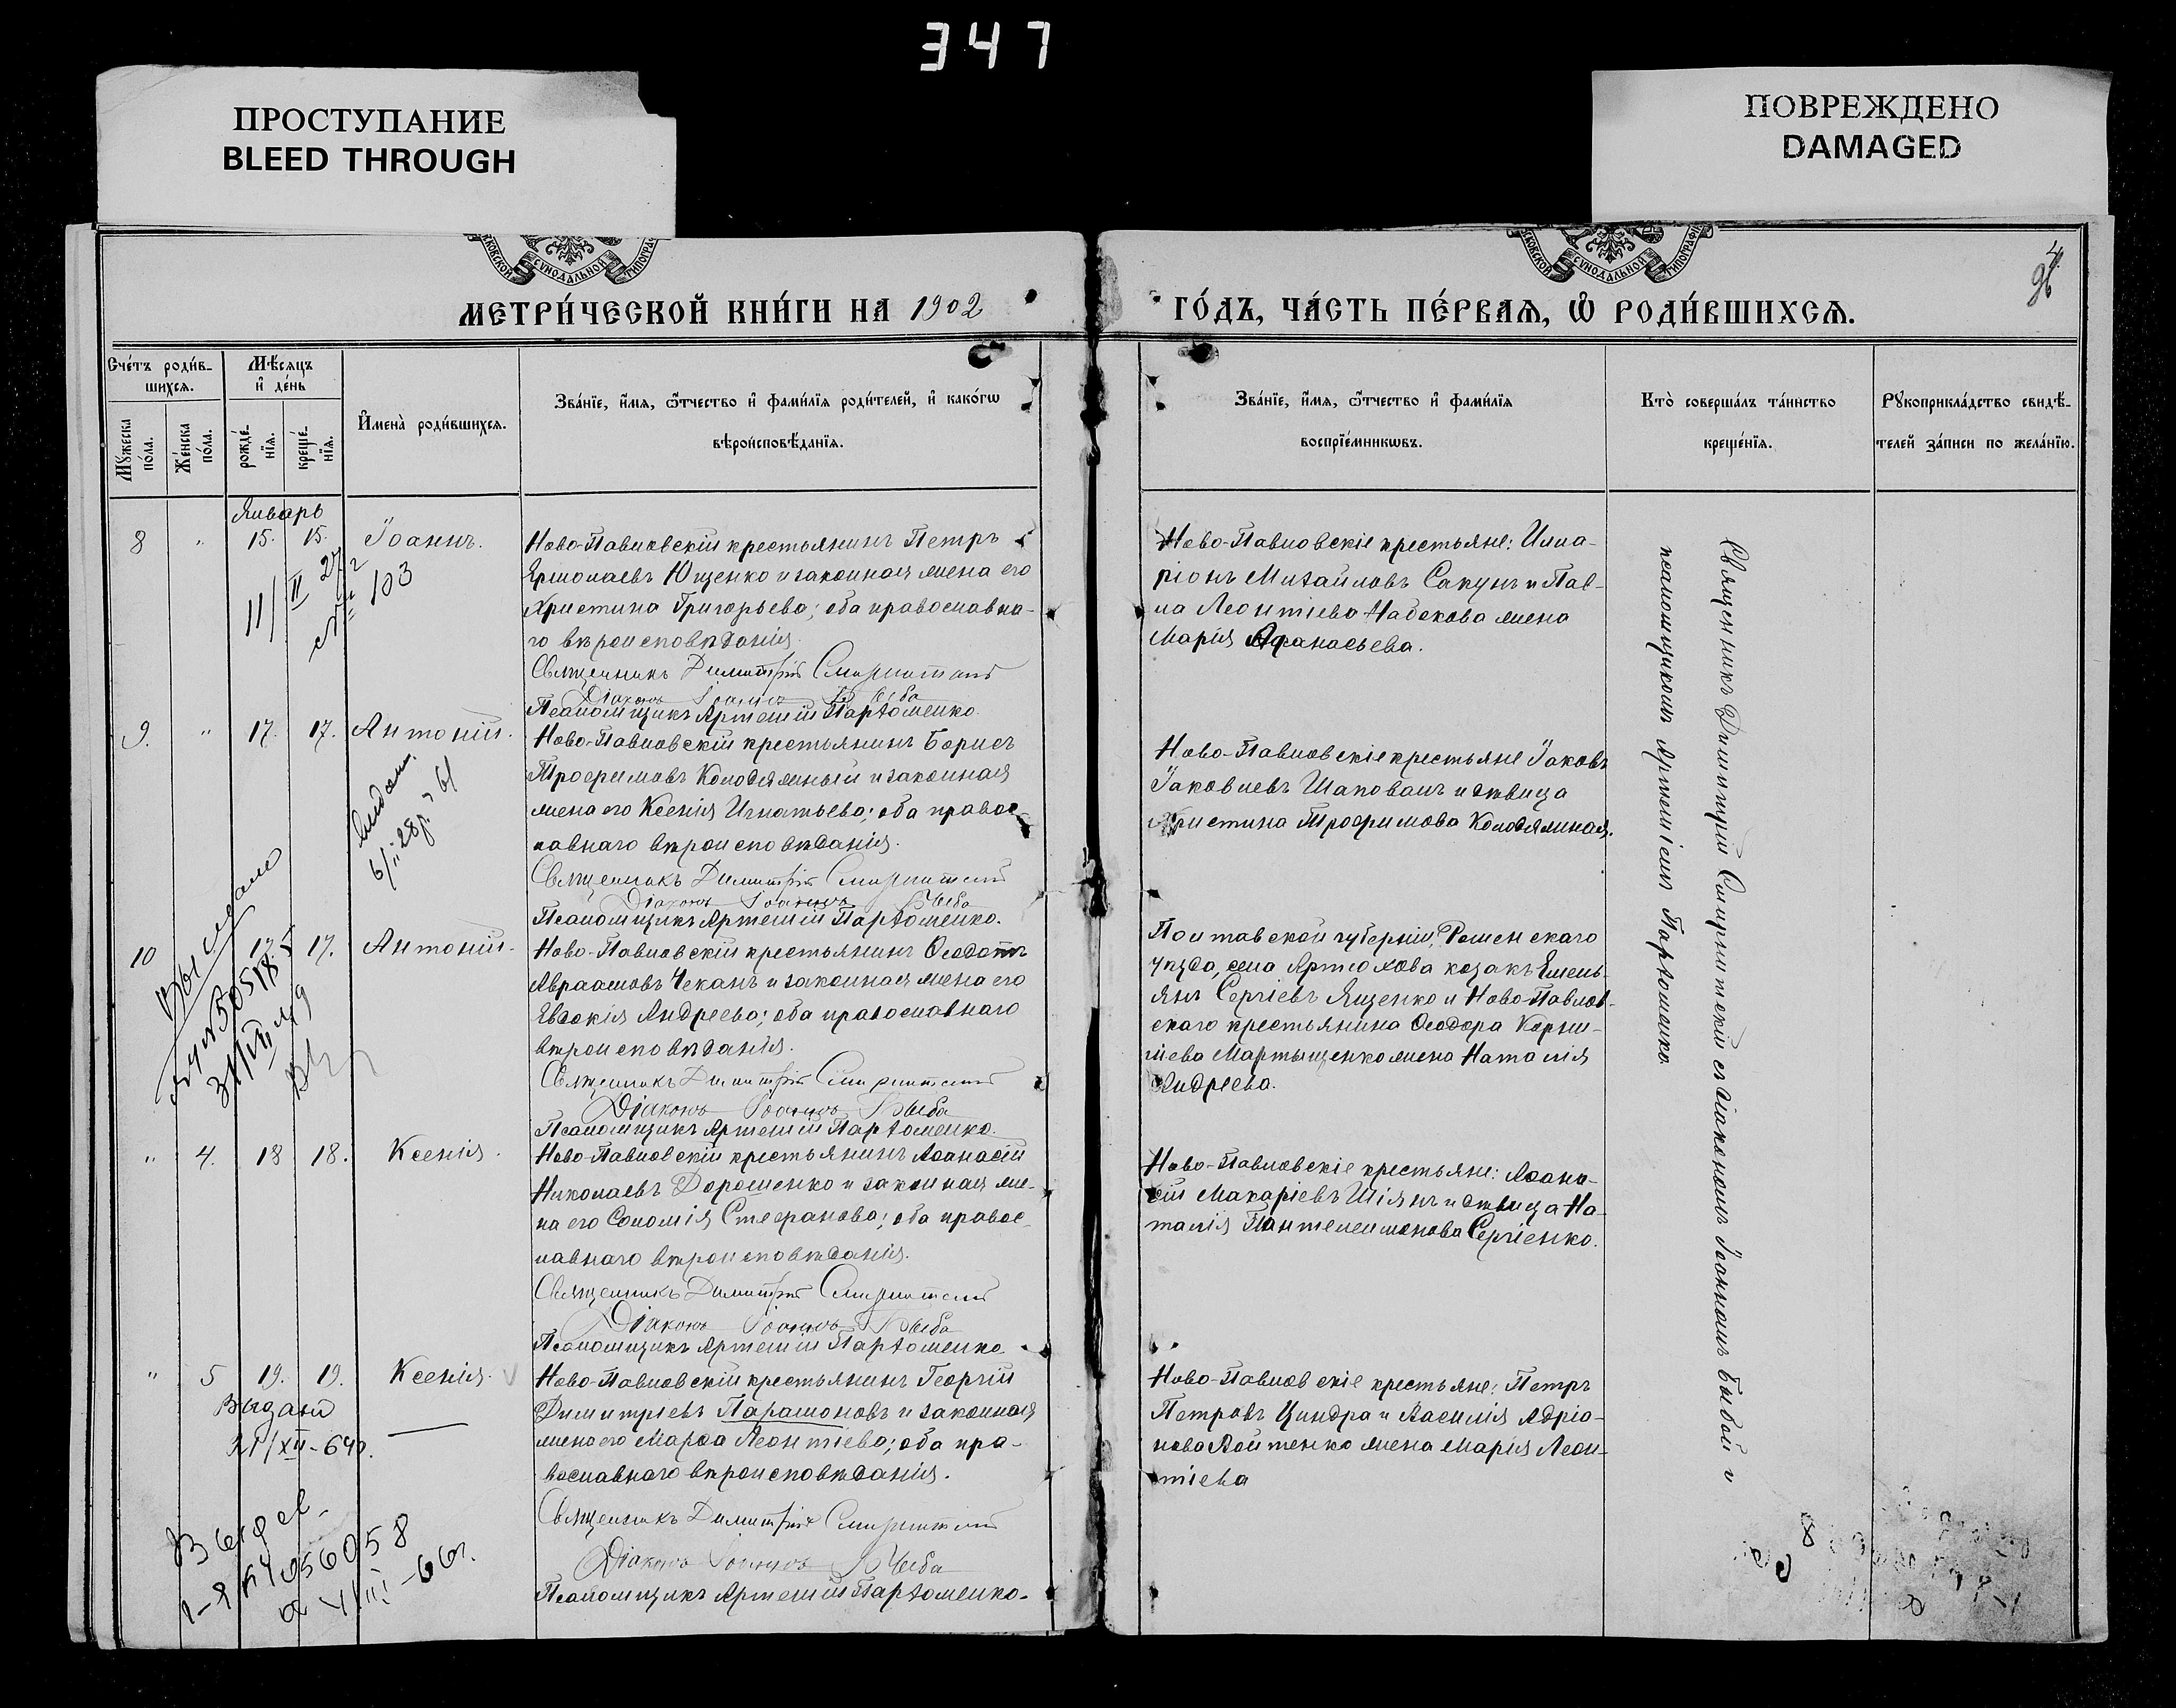 347
ПРОСТУПАНИЕ
BLEED THROUGH
ПОВРЕЖДЕНО
DAMAGED
МЕТРИ́ЧЕСКОЙ КНИ́ГИ НА 1902
ГО́ДЪ, ЧА́СТЬ ПЕ́РВАѦ, Ѡ РОДИ́ВШИХСѦ.
Сче́тъ роди́в-
шихсѧ.
Мѣ́сѧцъ
и҆ де́нь
Мꙋ́жеска
по́ла.
Же́нска
по́ла.
рожде́-
нїѧ.
креще́-
нїѧ.
И҆мена̀ роди́вшихсѧ.
Зва́нїе, и҆́мѧ, ѻ҆́тчество и҆ фами́лїѧ роди́телей, и҆ како́гѡ
вѣроисповѣ́данїѧ.
Зва́нїе, и҆́мѧ, ѻ҆́тчество и҆ фами́лїѧ
воспрїе́мникѡвъ.
Кто̀ соверша́лъ та́инство
креще́нїѧ.
Рꙋкоприкла́дство свидѣ́-
телей за́писи по жела́нїю.
Январь
8 " 15. 15. Іоаннъ.
Ново-Павловскій крестьянинъ Петръ
Ермолаевъ Ющенко и законная жена его
Христина Григорьева; оба православна-
го вѣроисповѣданія.
Священникъ Димитрій
Діаконъ Іоаннъ
Псаломщикъ Артемій Парѳоменко.
Ново-Павловскіе крестьяне: Илла-
ріонъ Михайловъ Сакунъ и Пав-
ла Леонтіева Набокова жена
Марія Афанасьева.
11/II 27 г
№ 103
9. " 17. 17. Антоній.
Ново-Павловскій крестьянинъ Борисъ
Трофимовъ Колодяжный и законная
жена его Ксенія Игнатьева; оба правос-
лавнаго вѣроисповѣданія.
Священникъ Димитрій
Діаконъ Іоаннъ
Псаломщикъ Артемій Парѳоменко.
Ново-Павловскіе крестьяне Іаковъ
Іаковлевъ Шаповалъ и дѣвица
Христина Трофимова Колодяжная.
10 17. 17. Антоній.
Ново-Павловскій крестьянинъ Ѳеодотъ
Авраамовъ Чеканъ и законная жена его
Евдокія Андреева; оба православнаго
вѣроисповѣданія.
Священникъ Димитрій
Діаконъ Іоаннъ
Псаломщикъ Артемій Парѳоменко.
Полтавской губерніи, Роменскаго
уѣзда, села Артюхова козакъ Емель-
янъ Сергіевъ Ященко и Ново-Павлов-
скаго крестьянина Ѳеодора Корни-
ліева Мартыщенко жена Наталія
Андреева.
" 4. 18 18. Ксенія.
Ново-Павловскій крестьянинъ Аѳанасій
Николаевъ Дорошенко и законная же-
на его Соломія Стефанова; оба правос-
лавнаго вѣроисповѣданія.
Священникъ Димитрій
Діаконъ Іоаннъ
Псаломщикъ Артемій Парѳоменко.
Ново-Павловскіе крестьяне: Аѳана-
сій Макаріевъ Шіянъ и дѣвица На-
талія Пантелеимонова Сергіенко.
" 5 19. 19. Ксенія.
Ново-Павловскій крестьянинъ Георгій
Димитріевъ Парамоновъ и законная
жена его Марѳа Леонтіева; оба пра-
вославнаго вѣроисповѣданія.
Священникъ Димитрій
Діаконъ Іоаннъ
Псаломщикъ Артемій Парѳоменко.
Ново-Павловскіе крестьяне: Петръ
Петровъ Цындра и Василія Адріа-
нова Войтенко жена Марія Леон-
тіева
Священникъ Димитрій съ діакономъ Іоанномъ и
псаломщикомъ Артеміемъ Парѳоменко